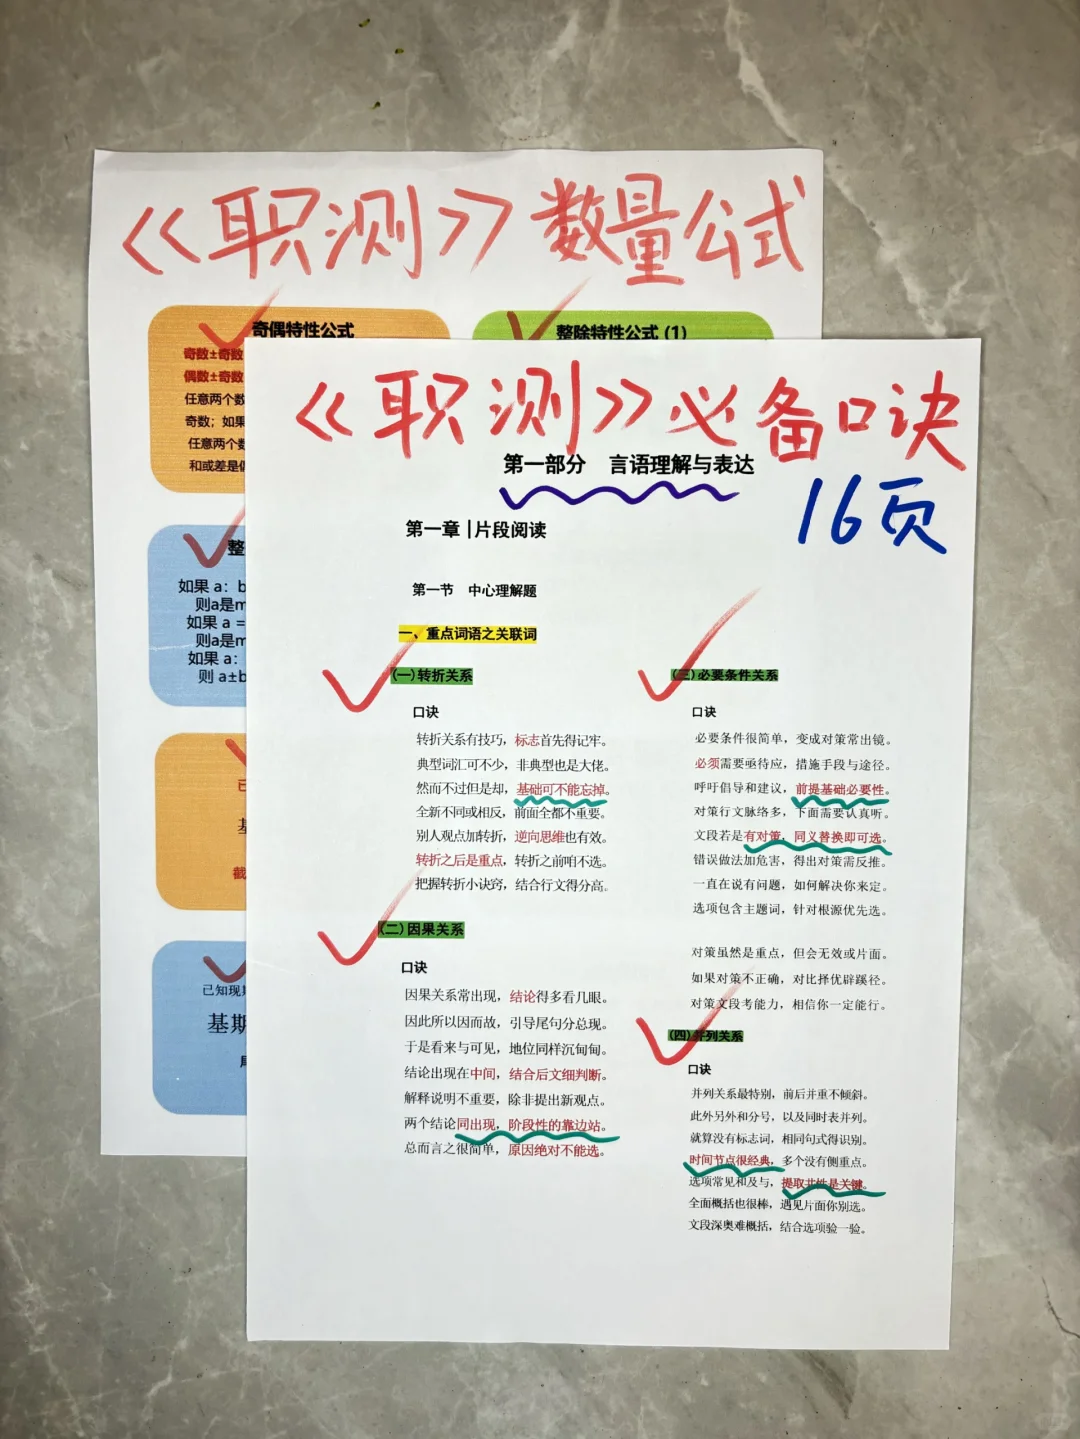 《职测》数量公式
奇偶特性公式
奇数±奇数
偶数±奇数
任意两个数
奇数；如果
任意两个数
和或差是偶
整除特性公式(1)
整
如果 a：b
则a是m
如果 a =
则a是m
如果 a：
则 a±b
已知现期
基期
《职测》必备口诀
16页
第一部分 言语理解与表达
第一章|片段阅读
第一节 中心理解题
一、重点词语之关联词
(一)转折关系
口诀
转折关系有技巧，标志首先得记牢。
典型词汇可不少，非典型也是大佬。
然而不过但是却，基础可不能忘掉。
全新不同或相反，前面全都不重要。
别人观点加转折，逆向思维也有效。
转折之后是重点，转折之前咱不选。
把握转折小诀窍，结合行文得分高。
(二)因果关系
口诀
因果关系常出现，结论得多看几眼。
因此所以因而故，引导尾句分总现。
于是看来与可见，地位同样沉甸甸。
结论出现在中间，结合后文细判断。
解释说明不重要，除非提出新观点。
两个结论同出现，阶段性的靠边站。
总而言之很简单，原因绝对不能选。
(三)必要条件关系
口诀
必要条件很简单，变成对策常出镜。
必须需要亟待应，措施手段与途径。
呼吁倡导和建议，前提基础必要性。
对策行文脉络多，下面需要认真听。
文段若是有对策，同义替换即可选。
错误做法加危害，得出对策需反推。
一直在说有问题，如何解决你来定。
选项包含主题词，针对根源优先选。
对策虽然是重点，但会无效或片面。
如果对策不正确，对比择优辟蹊径。
对策文段考能力，相信你一定能行。
(四)并列关系
口诀
并列关系最特别，前后并重不倾斜。
此外另外和分号，以及同时表并列。
就算没有标志词，相同句式得识别。
时间节点很经典，多个没有侧重点。
选项常见和及与，提取共性是关键。
全面概括也很棒，遇见片面你别选。
文段深奥难概括，结合选项验一验。